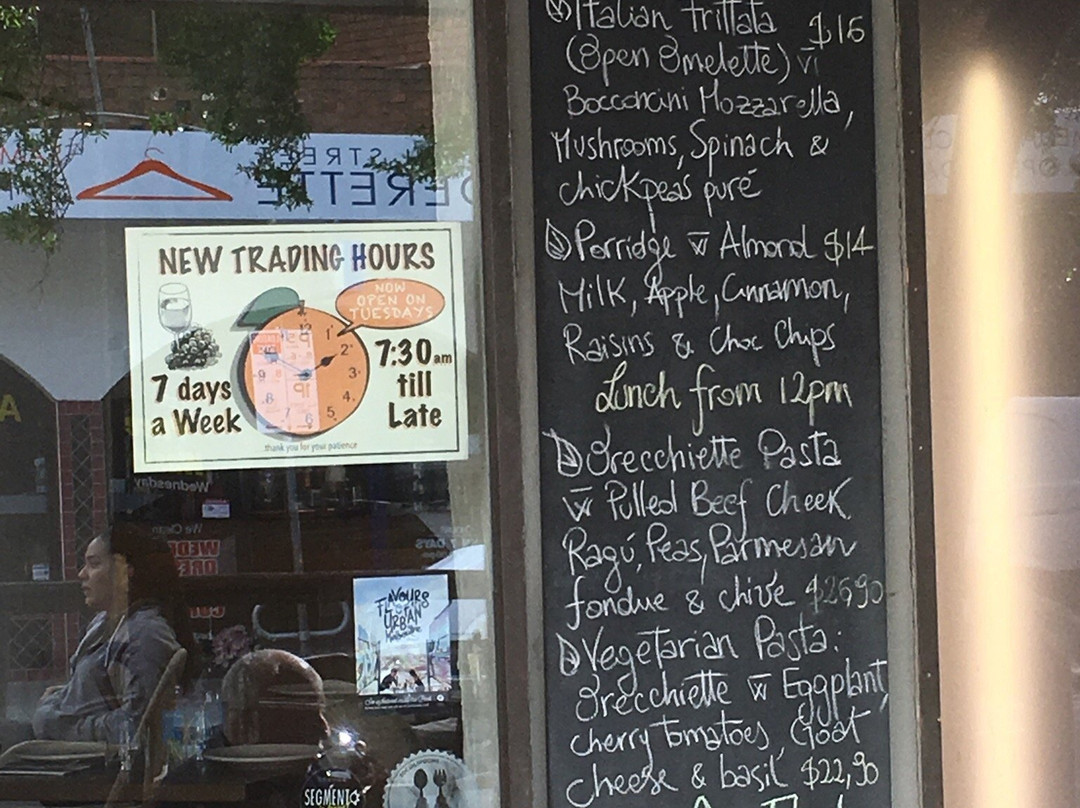 STREET
DERETTE
NEW TRADING HOURS
NOW
OPEN ON
TUESDAYS
7 days
a Week
7:30am
till
Late
thank you for your patience
Wednesday
We Clean
7 DAYS
URBAN
SEGMENTO
Italian frittata $16
(Open Omelette) w
Bocconcini Mozzarella,
Mushrooms, Spinach &
chickpeas puré
Porridge w Almond $14
Milk, Apple, Cinnamon,
Raisins & Choc Chips
Lunch from 12pm
Orecchiette Pasta
w Pulled Beef Cheek
Ragú, Peas, Parmesan
fondue & chive $26,90
Vegetarian Pasta:
Orecchiette w Eggplant,
cherry tomatoes, Goat
cheese & basil $22,90